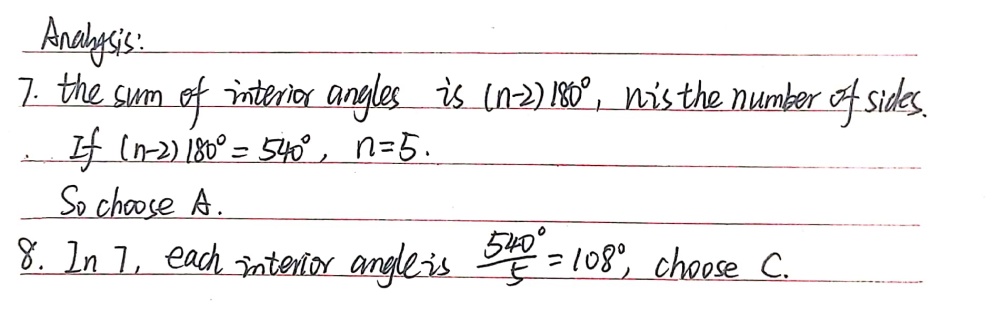 Analysis:
7. the sum of interior angles is (n-2)180°, n is the number of sides.
If (n-2)180° = 540°, n=5.
So choose A.
8. In 7, each interior angle is 540°/5 = 108°, choose C.